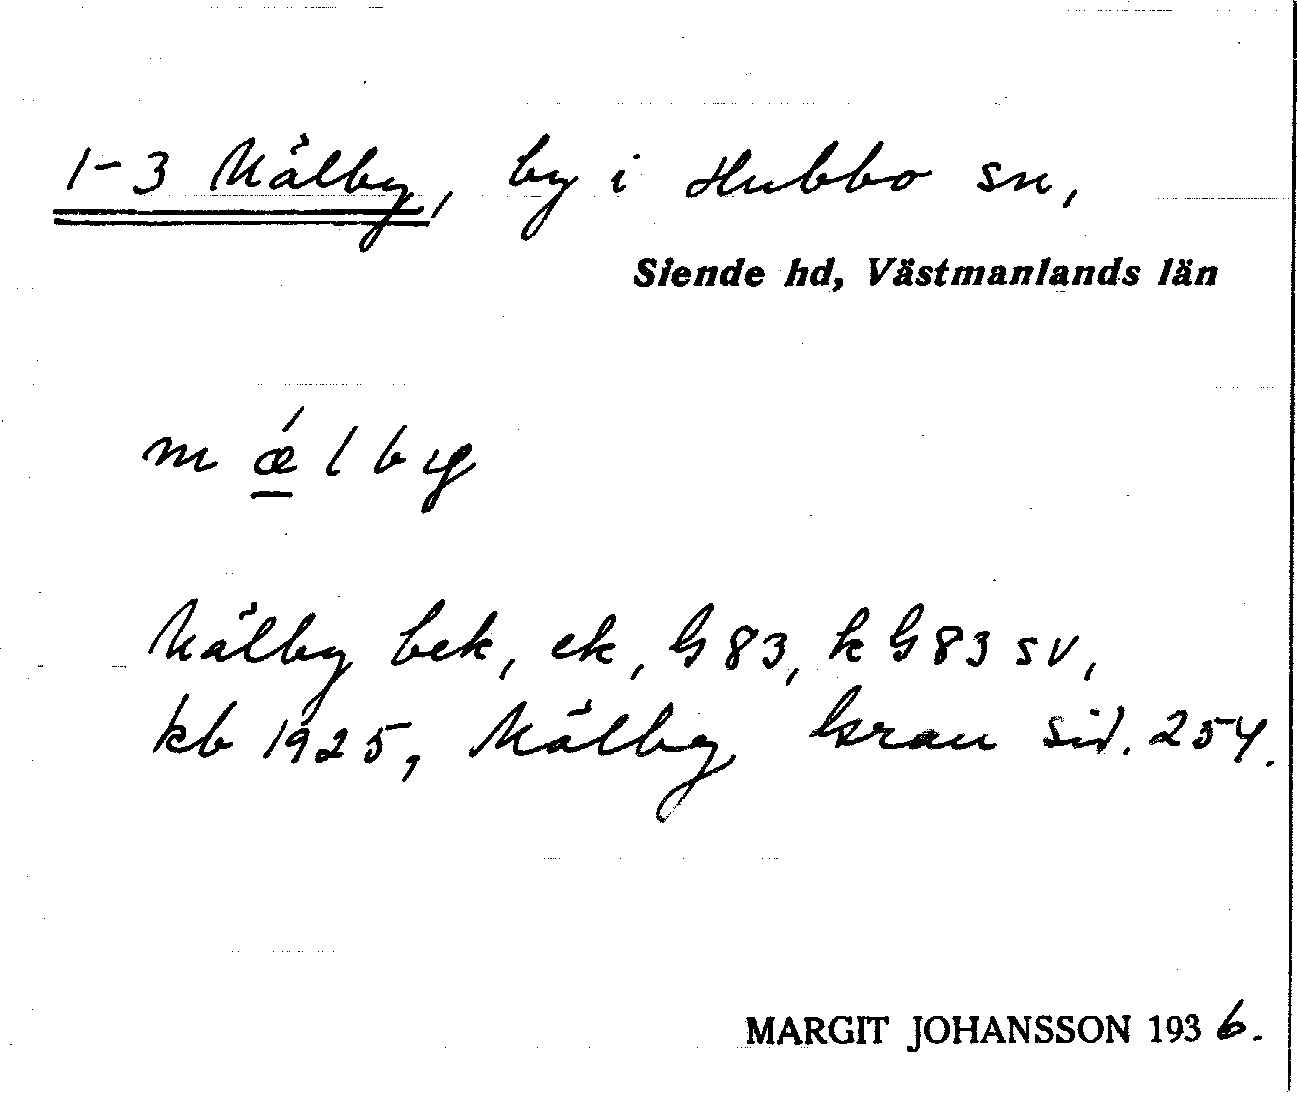 1-3 Mälby, by i Hubbo sn,
Siende hd, Västmanlands län
m ǽ l b y
Mälby bek, ek, G 83, k G 83 sv,
kb 1925, Mälby Grau sid. 254.
MARGIT JOHANSSON 1936.